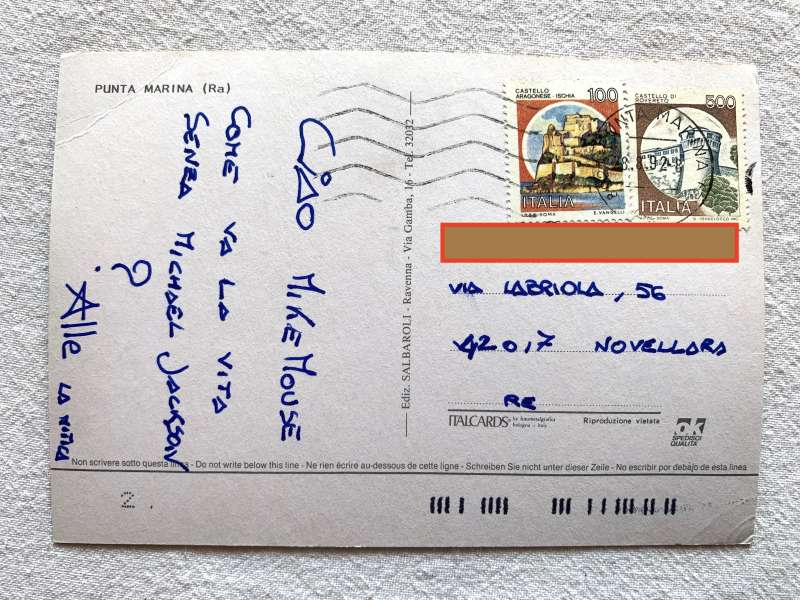 PUNTA MARINA (Ra)
CIAO MIKE MOUSE
COME VA LA VITA
SENZA MICHAEL JACKSON
?
Alle
Ediz. SALBAROLI - Ravenna - Via Gamba, 16 - Tel. 32032
CASTELLO ARAGONESE - ISCHIA 100
ITALIA
CASTELLO DI ROVERETO 500
ITALIA
PUNTA MARINA
VIA LABRIOLA, 56
42017 NOVELLARA
RE
ITALCARDS
bologna - italy
Riproduzione vietata
ok
SPEDISCI QUALITA'
Non scrivere sotto questa linea - Do not write below this line - Ne rien écrire au-dessous de cette ligne - Schreiben Sie nicht unter dieser Zeile - No escribir por debajo de esta linea
2.